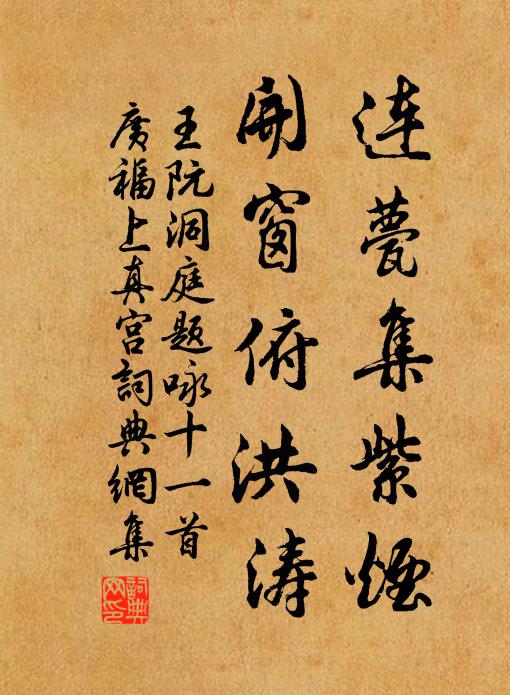 連甍集紫煙
開窗俯洪濤
王阮洞庭題咏十一首
廣福上真宮詞典網集
詞典
网印